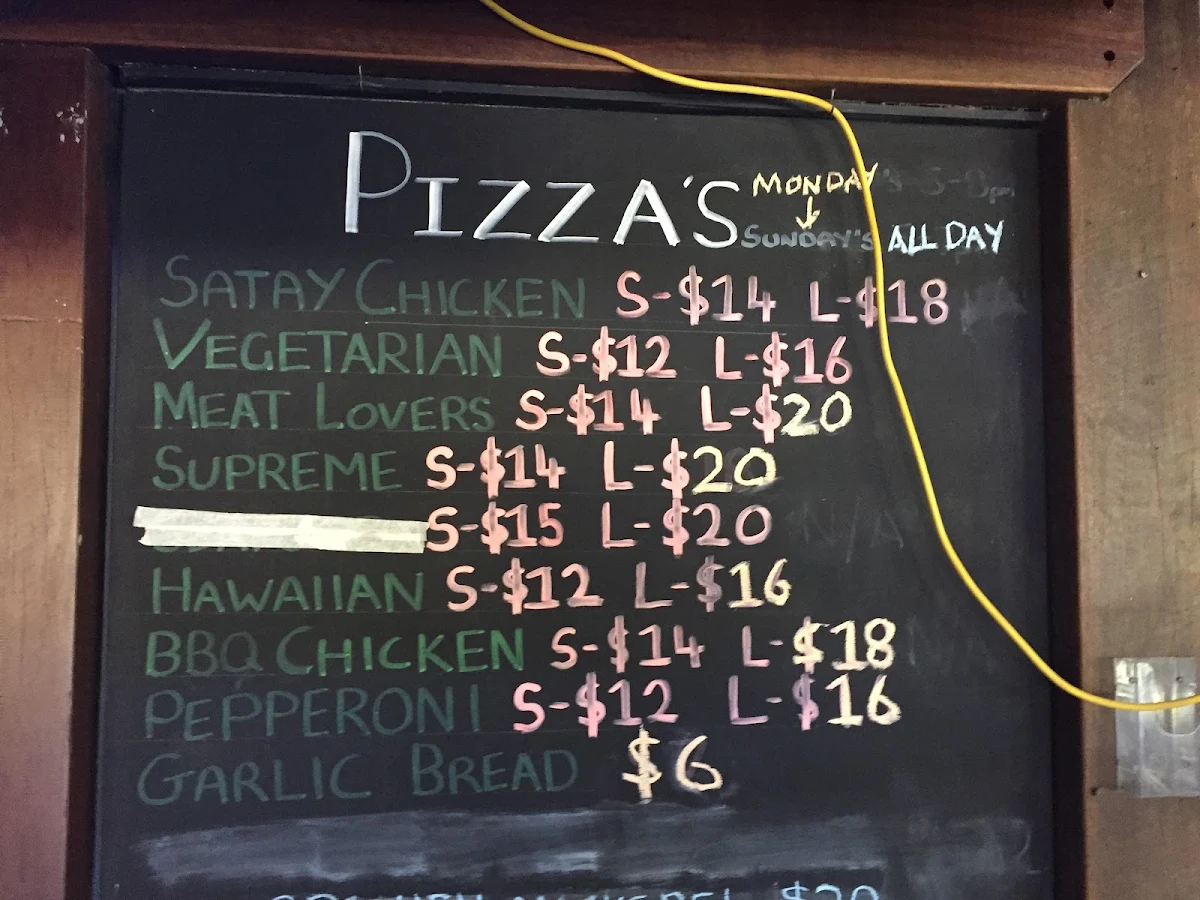 PIZZA'S MONDAY
↓
SUNDAY'S ALL DAY
SATAY CHICKEN S-$14 L-$18
VEGETARIAN S-$12 L-$16
MEAT LOVERS S-$14 L-$20
SUPREME S-$14 L-$20
S-$15 L-$20 N/A
HAWAIIAN S-$12 L-$16
BBQ CHICKEN S-$14 L-$18
PEPPERONI S-$12 L-$16
GARLIC BREAD $6
$20